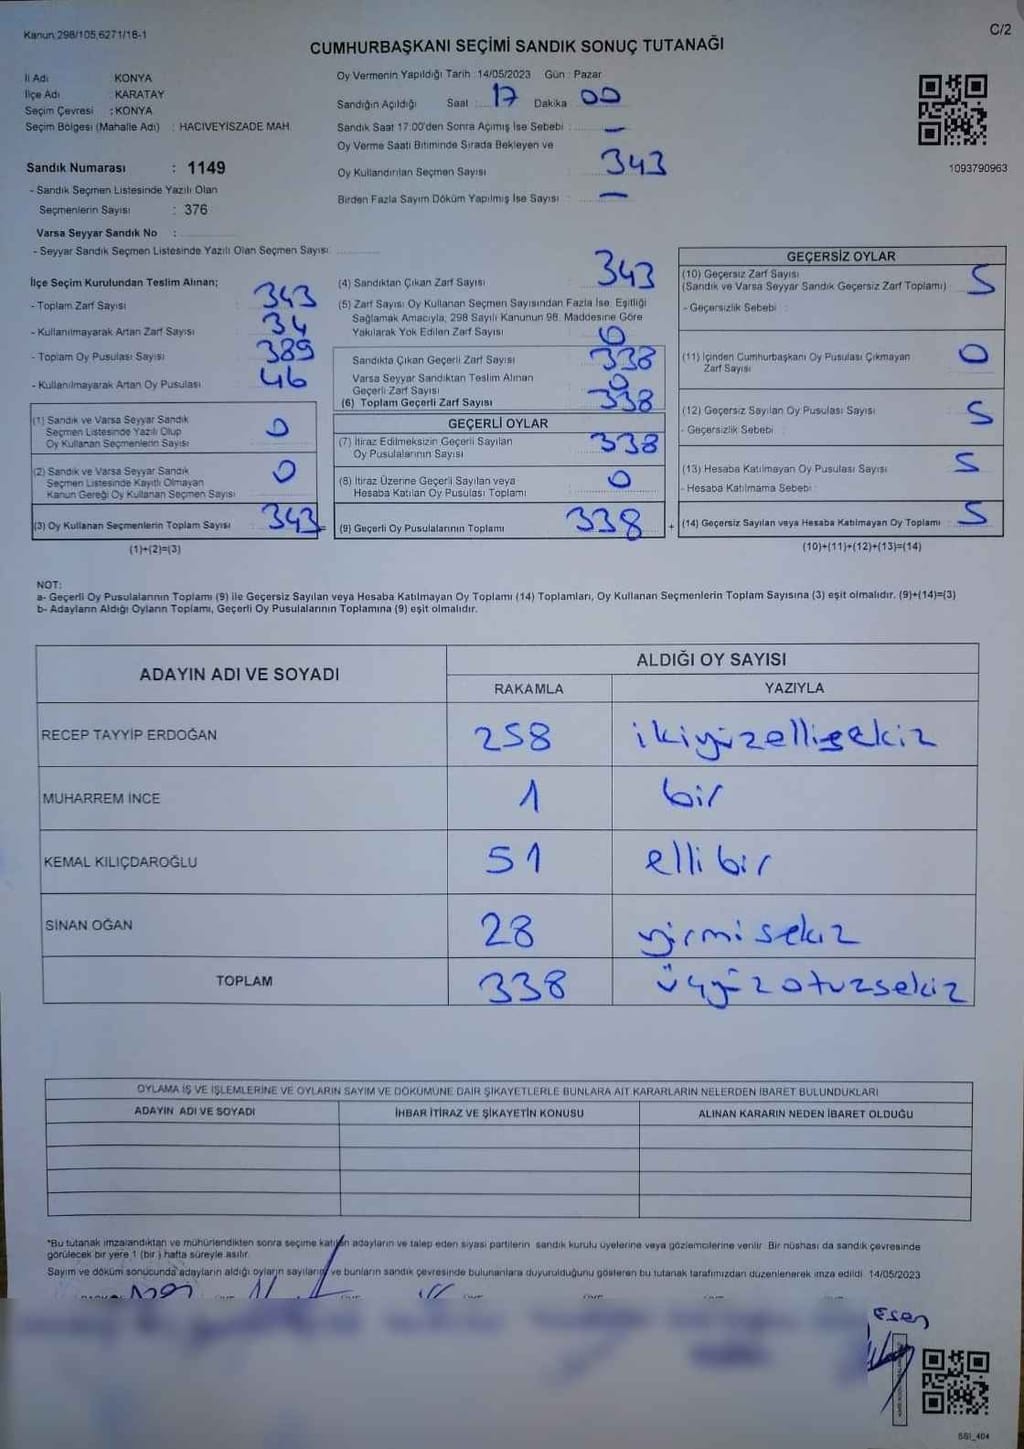 Kanun 298/105,6271/18-1
C/2
CUMHURBAŞKANI SEÇİMİ SANDIK SONUÇ TUTANAĞI
İl Adı KONYA
İlçe Adı : KARATAY
Seçim Çevresi : KONYA
Seçim Bölgesi (Mahalle Adı) : HACIVEYİSZADE MAH.
Sandık Numarası : 1149
- Sandık Seçmen Listesinde Yazılı Olan
Seçmenlerin Sayısı : 376
Varsa Seyyar Sandık No :
- Seyyar Sandık Seçmen Listesinde Yazılı Olan Seçmen Sayısı:
Oy Vermenin Yapıldığı Tarih : 14/05/2023 Gün : Pazar
Sandığın Açıldığı Saat : 17 Dakika 00
Sandık Saat 17:00'den Sonra Açımış İse Sebebi : —
Oy Verme Saati Bitiminde Sırada Bekleyen ve
Oy Kullandırılan Seçmen Sayısı 343
Birden Fazla Sayım Döküm Yapılmış İse Sayısı : —
1093790963
İlçe Seçim Kurulundan Teslim Alınan;
- Toplam Zarf Sayısı 343
- Kullanılmayarak Artan Zarf Sayısı 34
- Toplam Oy Pusulası Sayısı 389
- Kullanılmayarak Artan Oy Pusulası 46
(1) Sandık ve Varsa Seyyar Sandık
Seçmen Listesinde Yazılı Olup
Oy Kullanan Seçmenlerin Sayısı 0
(2) Sandık ve Varsa Seyyar Sandık
Seçmen Listesinde Kayıtlı Olmayan
Kanun Gereği Oy Kullanan Seçmen Sayısı 0
(3) Oy Kullanan Seçmenlerin Toplam Sayısı 343
(1)+(2)=(3)
(4) Sandıktan Çıkan Zarf Sayısı 343
(5) Zarf Sayısı Oy Kullanan Seçmen Sayısından Fazla İse; Eşitliği
Sağlamak Amacıyla; 298 Sayılı Kanunun 98. Maddesine Göre
Yakılarak Yok Edilen Zarf Sayısı 0
Sandıkta Çıkan Geçerli Zarf Sayısı 338
Varsa Seyyar Sandıktan Teslim Alınan
Geçerli Zarf Sayısı 0
(6) Toplam Geçerli Zarf Sayısı 338
GEÇERLİ OYLAR
(7) İtiraz Edilmeksizin Geçerli Sayılan
Oy Pusulalarının Sayısı 338
(8) İtiraz Üzerine Geçerli Sayılan veya
Hesaba Katılan Oy Pusulası Toplamı 0
(9) Geçerli Oy Pusulalarının Toplamı 338 +
GEÇERSİZ OYLAR
(10) Geçersiz Zarf Sayısı
(Sandık ve Varsa Seyyar Sandık Geçersiz Zarf Toplamı) 5
- Geçersizlik Sebebi :
(11) İçinden Cumhurbaşkanı Oy Pusulası Çıkmayan
Zarf Sayısı 0
(12) Geçersiz Sayılan Oy Pusulası Sayısı 5
- Geçersizlik Sebebi :
(13) Hesaba Katılmayan Oy Pusulası Sayısı 5
- Hesaba Katılmama Sebebi :
(14) Geçersiz Sayılan veya Hesaba Katılmayan Oy Toplamı 5
(10)+(11)+(12)+(13)=(14)
NOT:
a- Geçerli Oy Pusulalarının Toplamı (9) ile Geçersiz Sayılan veya Hesaba Katılmayan Oy Toplamı (14) Toplamları, Oy Kullanan Seçmenlerin Toplam Sayısına (3) eşit olmalıdır. (9)+(14)=(3)
b- Adayların Aldığı Oyların Toplamı, Geçerli Oy Pusulalarının Toplamına (9) eşit olmalıdır.
ADAYIN ADI VE SOYADI ALDIĞI OY SAYISI
RAKAMLA YAZIYLA
RECEP TAYYİP ERDOĞAN 258 ikiyüzellisekiz
MUHARREM İNCE 1 bir
KEMAL KILIÇDAROĞLU 51 elli bir
SİNAN OĞAN 28 yirmi sekiz
TOPLAM 338 üçyüzotuzsekiz
OYLAMA İŞ VE İŞLEMLERİNE VE OYLARIN SAYIM VE DÖKÜMÜNE DAİR ŞİKAYETLERLE BUNLARA AİT KARARLARIN NELERDEN İBARET BULUNDUKLARI
ADAYIN ADI VE SOYADI İHBAR İTİRAZ VE ŞİKAYETİN KONUSU ALINAN KARARIN NEDEN İBARET OLDUĞU
*Bu tutanak imzalandıktan ve mühürlendikten sonra seçime katılan adayların ve talep eden siyasi partilerin sandık kurulu üyelerine veya gözlemcilerine verilir. Bir nüshası da sandık çevresinde
görülecek bir yere 1 (bir ) hafta süreyle asılır.
Sayım ve döküm sonucunda adayların aldığı oyların sayıların ve bunların sandık çevresinde bulunanlara duyurulduğunu gösteren bu tutanak tarafımızdan düzenlenerek imza edildi. 14/05/2023
Esen
SSI_404